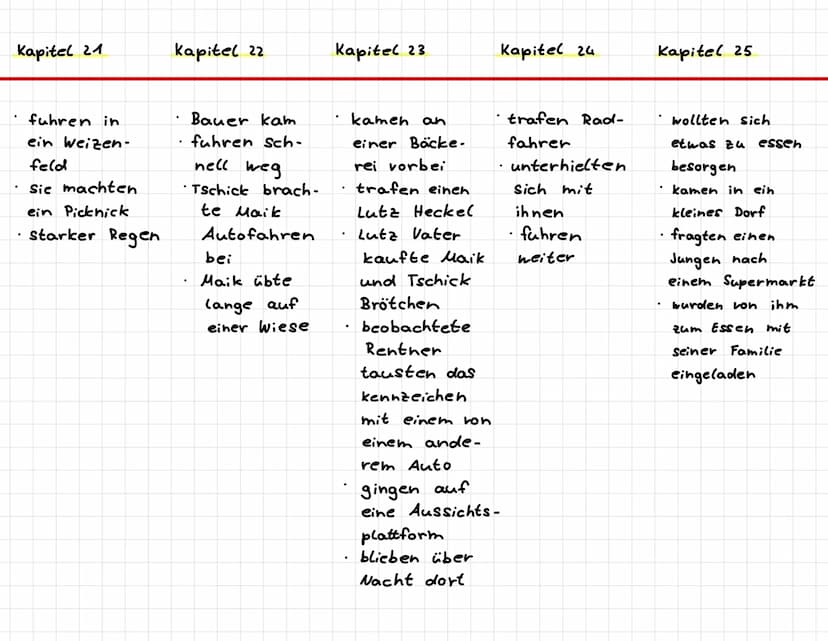 Kapitel 21
fuhren in
ein Weizen-
feld
sie machten
ein Picknick
starker Regen
Kapitel 22
Bauer kam
fuhren sch-
nell weg
Tschick brach-
te Maik
Autofahren
bei
Maik übte
lange auf
einer Wiese
Kapitel 23
kamen an
einer Bäcke-
rei vorbei
trafen einen
Lutz Heckel
Lutz Vater
kaufte Maik
und Tschick
Brötchen
beobachtete
Rentner
tausten das
kennzeichen
mit einem von
einem ande-
rem Auto
gingen auf
eine Aussichts-
plattform
blieben über
Nacht dort
Kapitel 24
trafen Rad-
fahrer
unterhielten
sich mit
ihnen
fuhren
weiter
Kapitel 25
wollten sich
etwas zu essen
besorgen
kamen in ein
kleines Dorf
fragten einen
Jungen nach
einem Supermarkt
wurden von ihm
zum Essen mit
seiner Familie
eingeladen